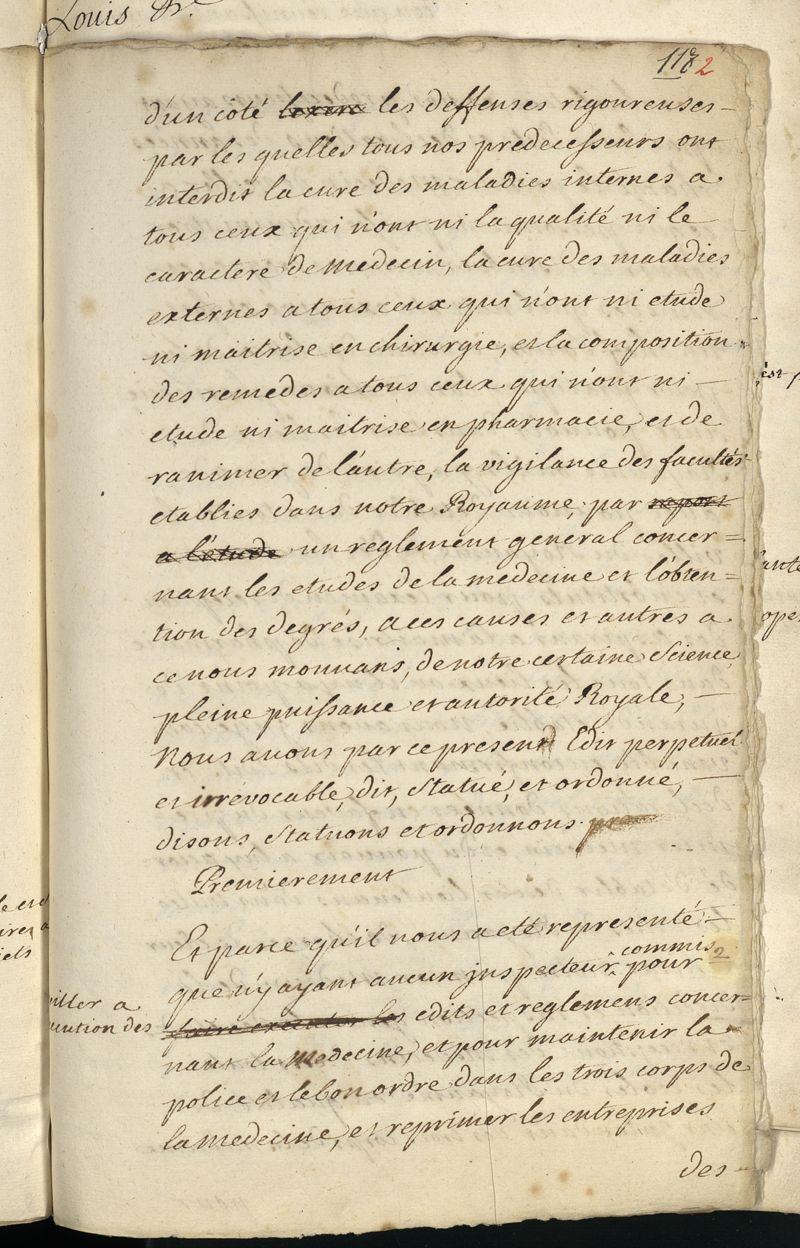 Louis &c.
118 2
d'un coté les deffenses rigoureuses -
par les quelles tous nos predecesseurs ont
interdit la cure des maladies internes a
tous ceux qui n'ont ni la qualité ni le
caractere de medecin, la cure des maladies
externes a tous ceux qui n'ont ni etude
ni maitrise en chirurgie, et la composition
des remedes a tous ceux qui n'ont ni -
etude ni maitrise en pharmacie, et de
ranimer de l'autre, la vigilance des facultés
etablies dans notre Royaume, par raport
a l'etude un reglement general concer=
nant les etudes de la medecine et l'obten=
tion des degrés, a ces causes et autres a
ce nous mouvans, de notre certaine science,
pleine puissance et autorité Royale, -
Nous avons par ce present Edit perpetuel
et irrévocable, dit, statué, et ordonné, -
disons, statuons et ordonnons
Premierement
Et parce qu'il nous a eté representé -
que n'y ayant aucun inspecteur commis pour
veiller a
l'execution des
faire executer les edits et reglemens concer=
nant la medecine, et pour maintenir la
police et le bon ordre dans les trois corps de
la medecine, et reprimer les entreprises
des -